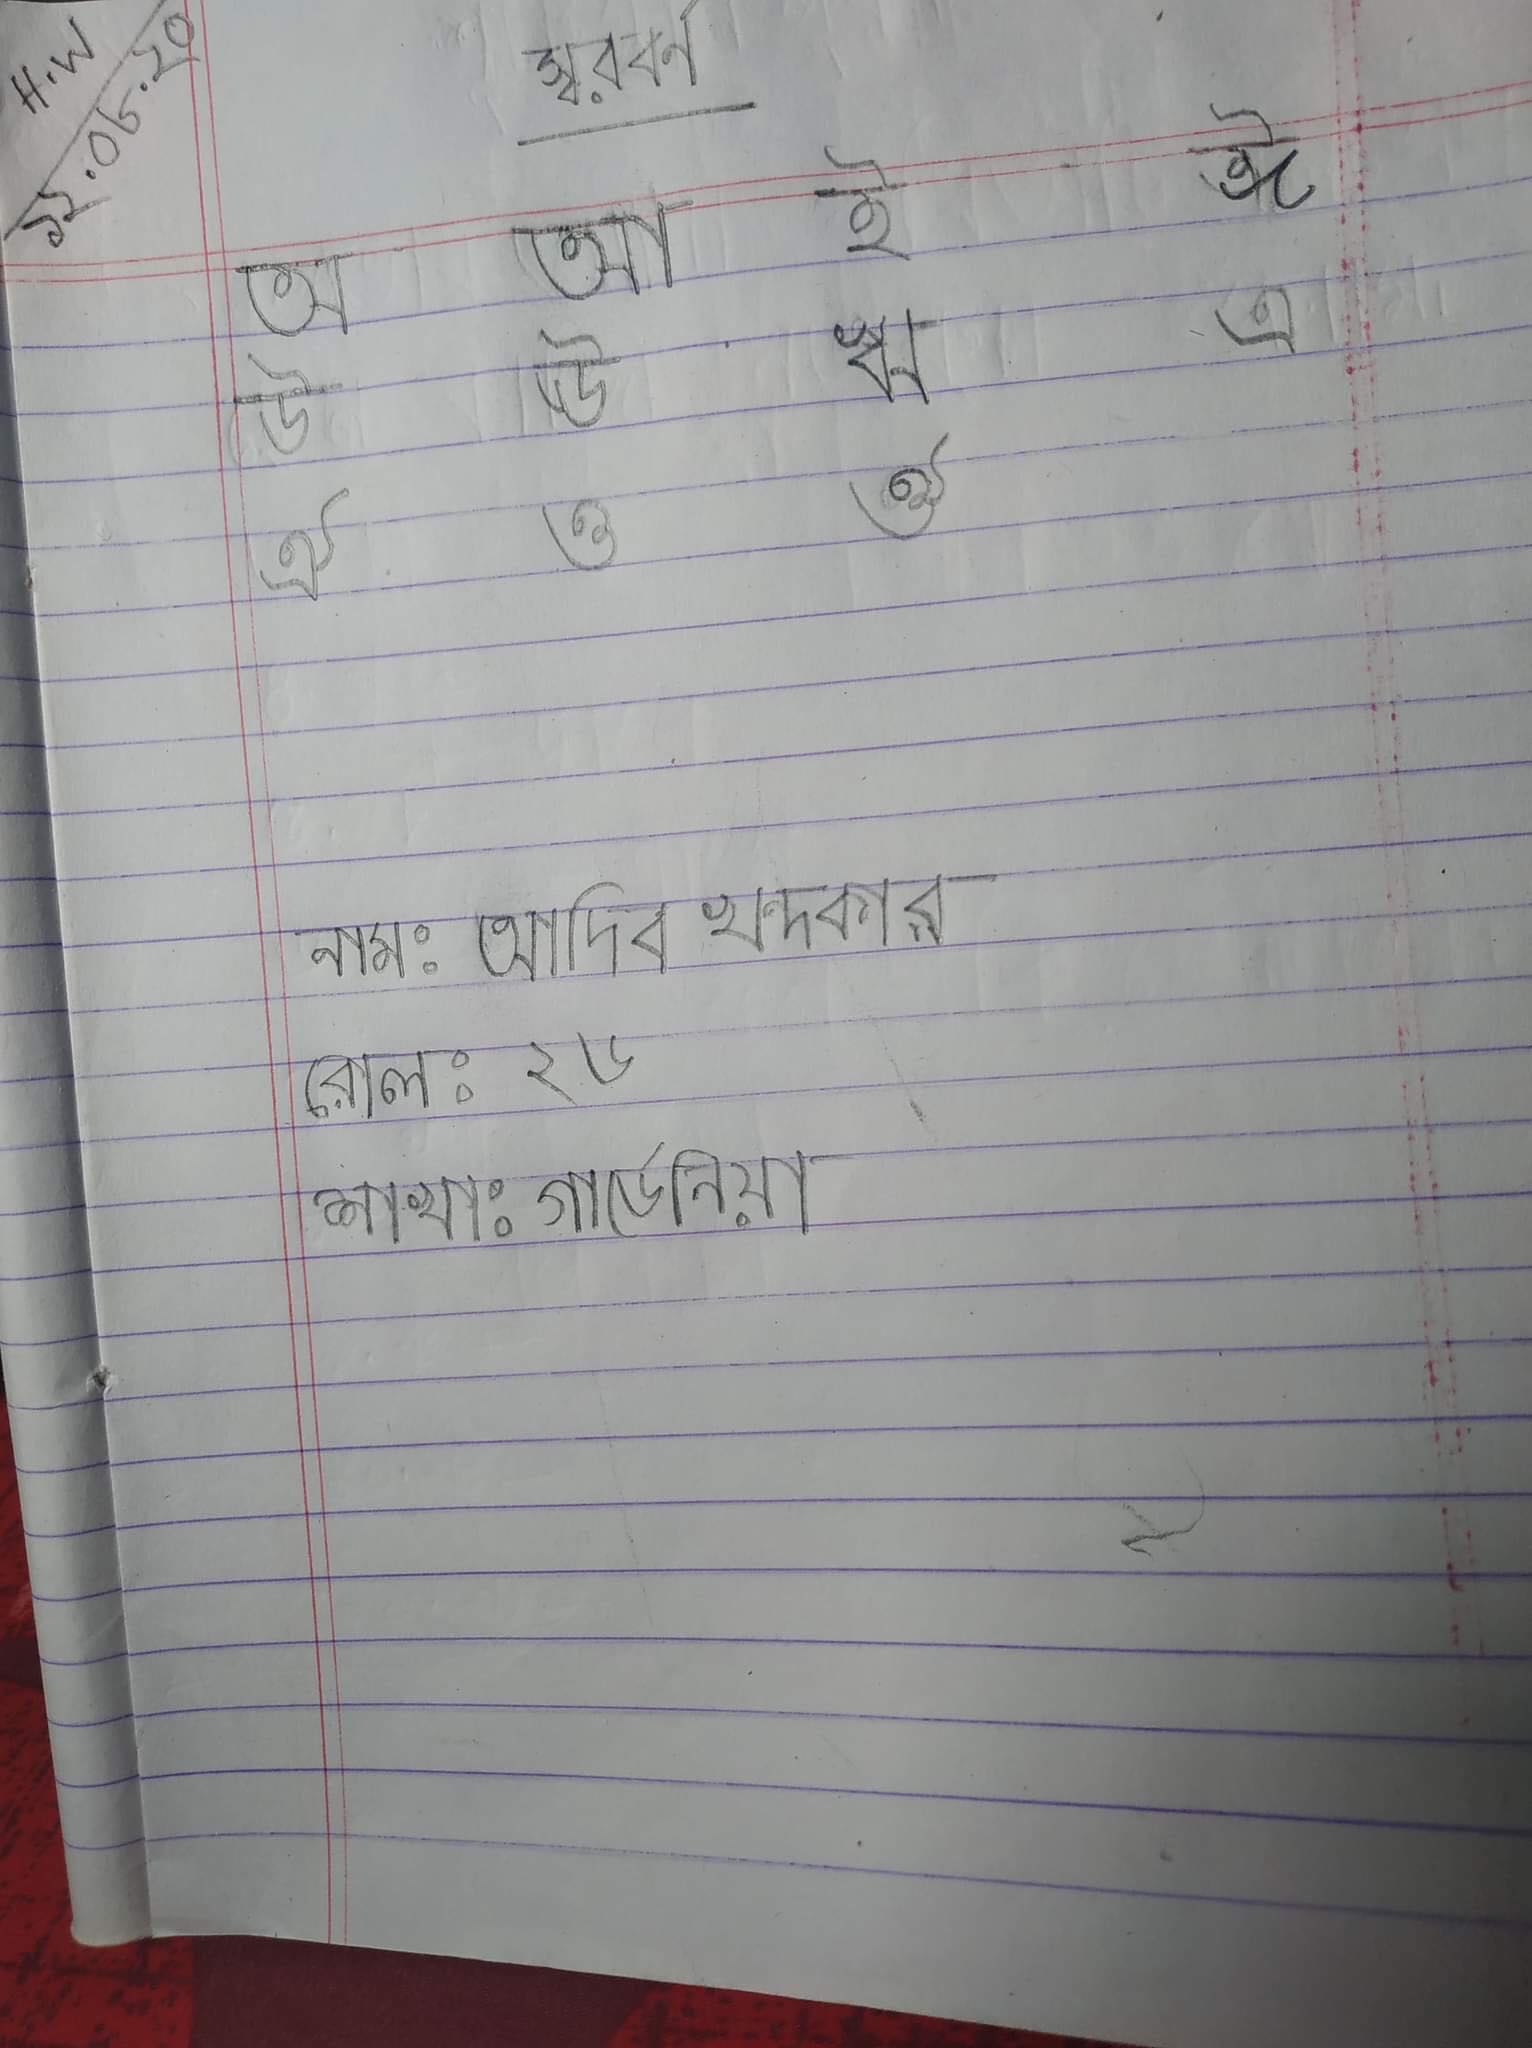 H.W
১২.০৮.২০
স্বরবর্ণ
অ আ ই ঈ
উ ঊ ঋ এ
ঐ ও ঔ
নামঃ আদিব খন্দকার
রোলঃ ২৬
শাখাঃ গার্ডেনিয়া